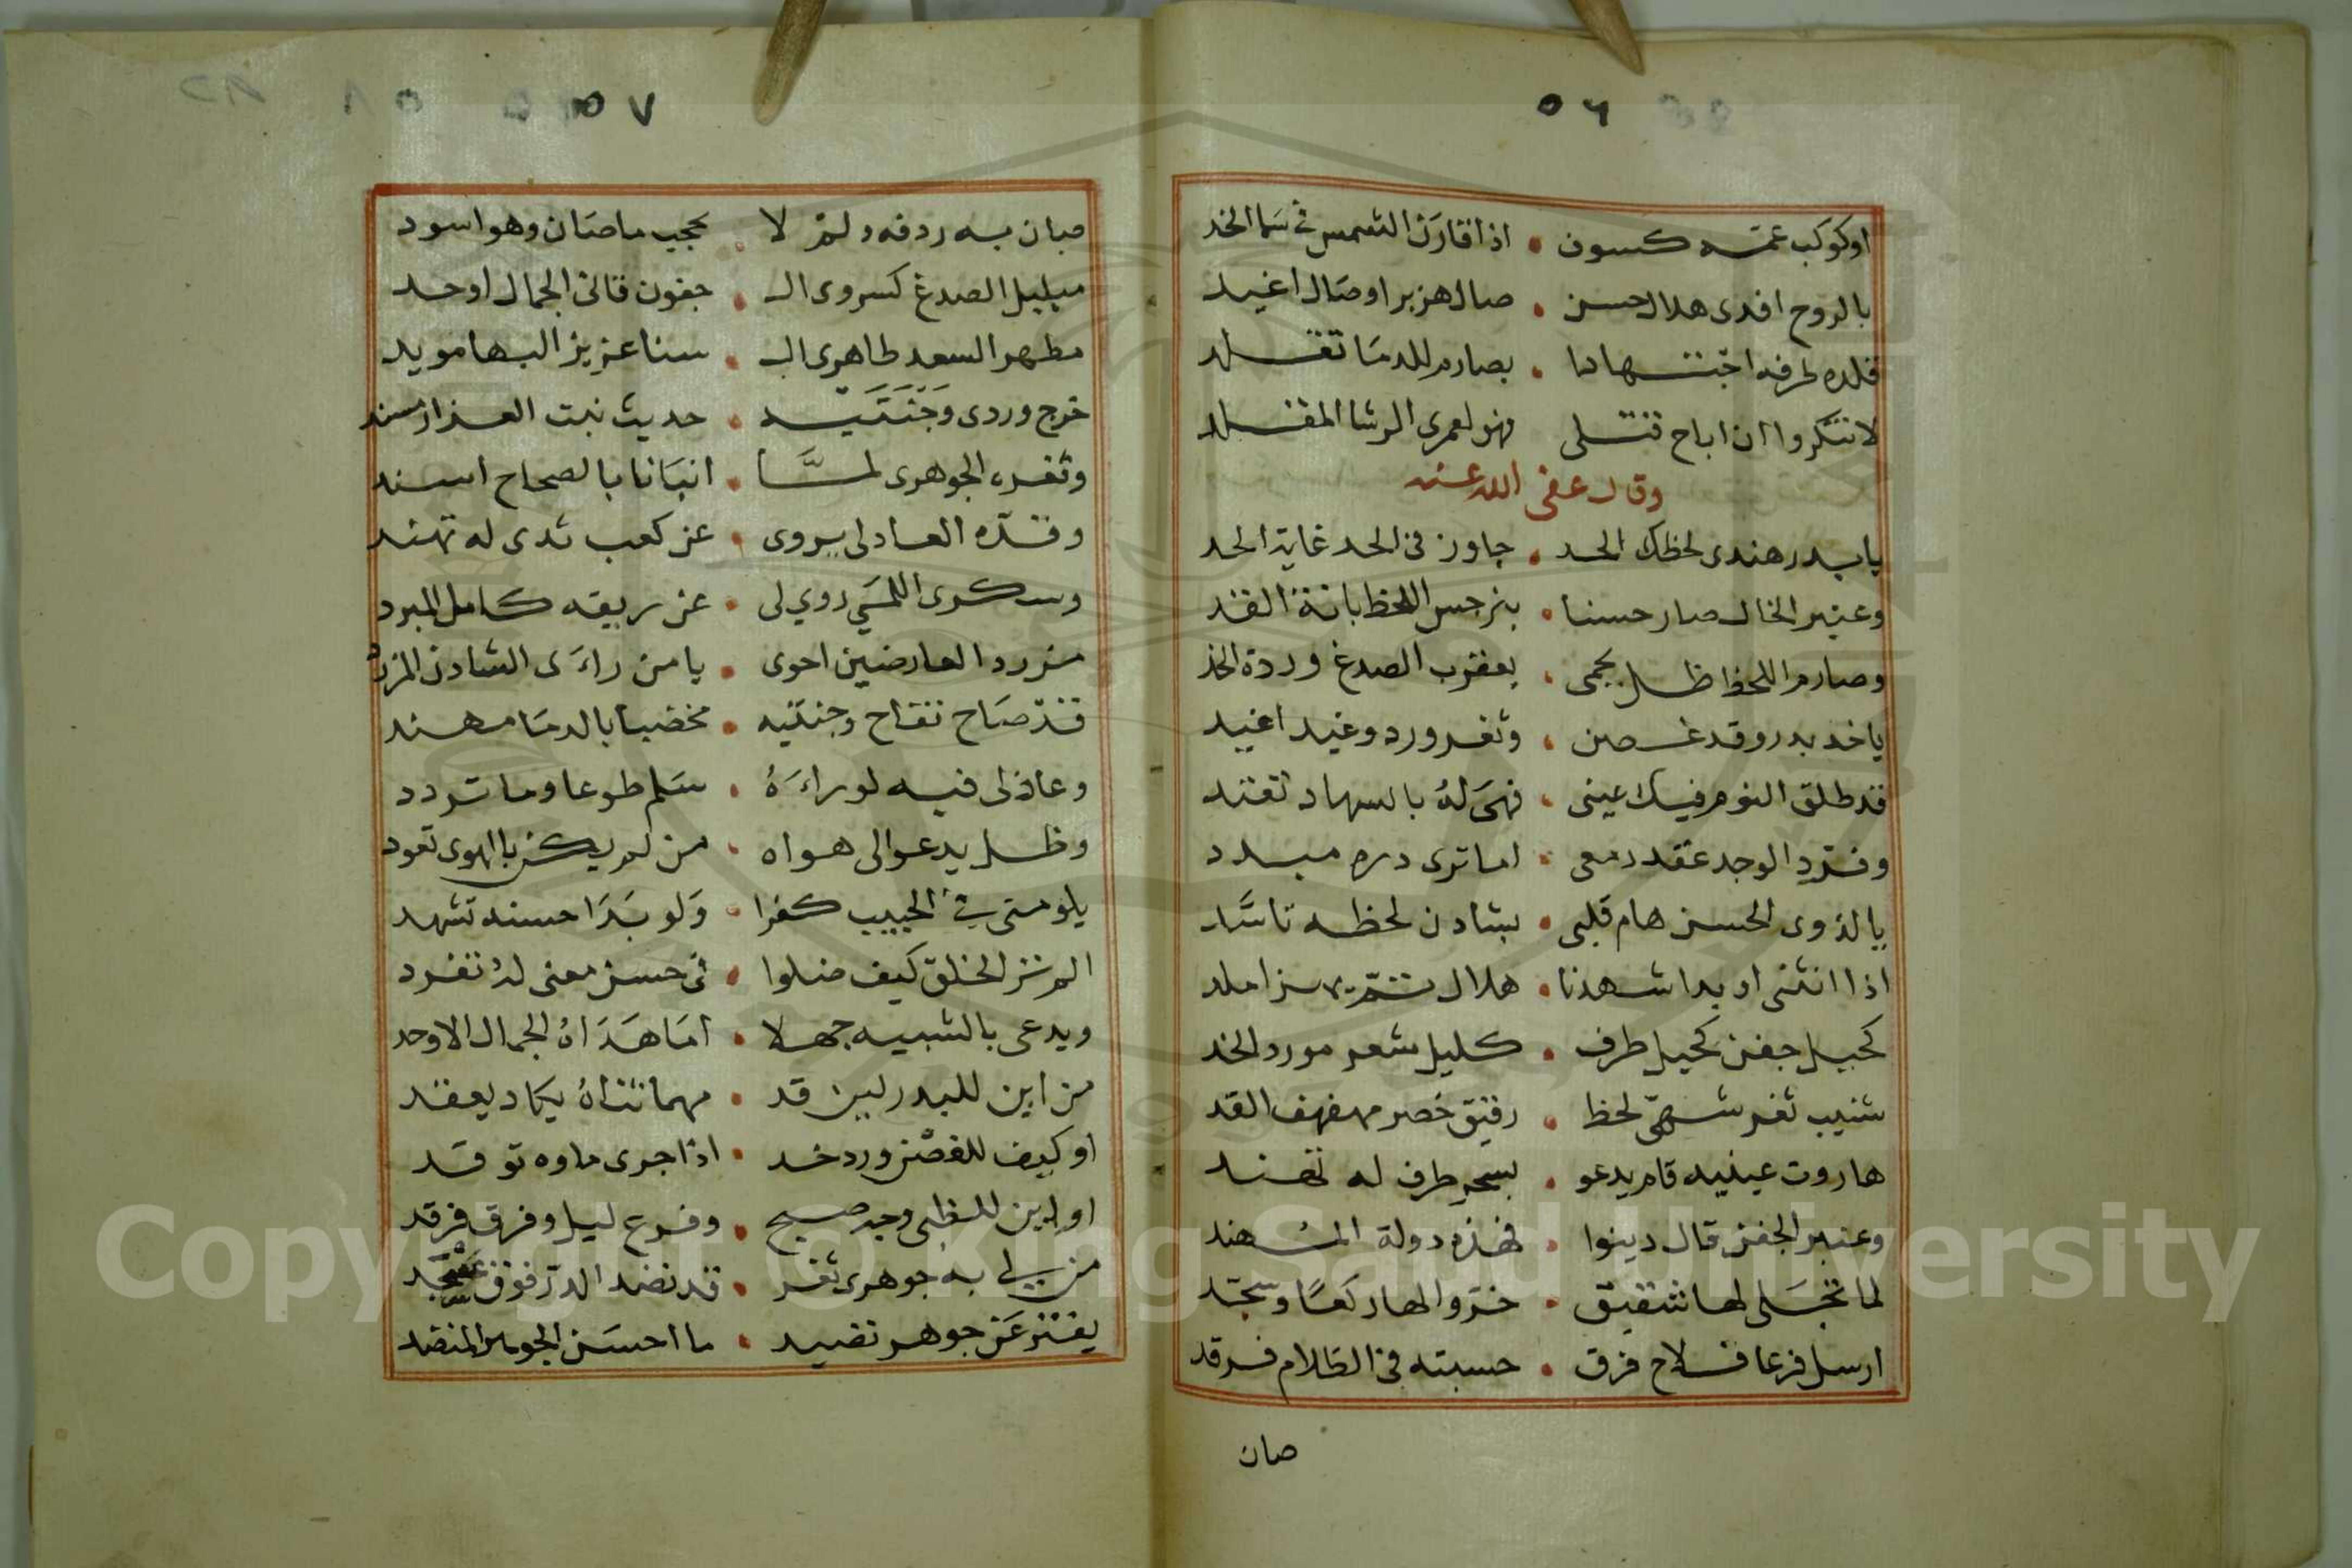 ٥٦
اوكوكب عمته كسوف • اذا قارن الشمس فى سما الخد
بالروح افدى هلال حسن • صال هزبرا وصال اغيد
قلده طرفه اجتهادا • بصارم للدما تقلد
لا تنكروا ان اباح قتلى فهو لعمرى الرشا المقلد
وقال عفى الله عنه
يا بدر هندى لحظك الحد • جاوز فى الحد غاية الحد
وعنبر الخال صار حسنا • بنرجس اللحظ بانة القد
وصارم اللحظ ظل يحمى • بعقرب الصدغ وردة الخد
ياخد بدر وقد غصن • وثغر ورد وغيد اغيد
قد طلق النوم فيك عينى • فهى له بالسهاد تعتد
وفرد الوجد عقد دمعى • اما ترى دره مبدد
يا لذوى الحسن هام قلبى • بشادن لحظه تاسد
اذا انثنى او بدا شهدنا • هلال تم بغصن املد
كحيل جفن كحيل طرف • كليل شعر مورد الخد
شنيب ثغر شهى لحظ • رقيق خصر مهفهف القد
هاروت عينيه قام يدعو • بسحر طرف له تهند
وعنبر الجفن قال دينوا • فهذه دولة المهند
لما تجلى لها شقيق • خروا لها ركعا وسجد
ارسل فرعا فلاح فرق • حسبته فى الظلام فرقد
صان
٥٧
صان به ردفه ولم لا • عجيب ما صان وهو اسود
مبلبل الصدغ كسروى ال • جفون قانى الجمال اوحد
مطهر السعد طاهرى ال • سنا عزيز البها مويد
خرج وردى وجنتيه • حديث نبت العذار مسند
وثغره الجوهرى لما • انبانا بالصحاح اسند
وقده العادلى يروى • عن كعب ثدى له تهند
وسكرى اللمى روي لى • عن ريقه كامل المبرد
مزرد العارضين احوى • يا من راءى الشادن المزرد
قد صاح تفاح وجنتيه • مخضبا بالدما مهند
وعاذلى فيه لو راءه • سلم طوعا وما تردد
وظل يدعو الى هواه • من لم يكن بالهوى تعود
يلومنى فى الحبيب كفرا • ولو بدا حسنه تشهد
الم تر الخلق كيف ضلوا • فى حسن معنى له تفرد
ويدعى بالشبيه جهلا • اما هداه الجمال الاوحد
من اين للبدر لين قد • مهما تثناه يكاد يعقد
او كيف للغصن ورد خد • اذا جرى ماوه توقد
او اين للظبى وجه صبح • وفرع ليل وفرق فرقد
من لى به جوهرى ثغر • قد نضد الدر فوق عسجد
يفتر عن جوهر نضيد • ما احسن الجوهر المنضد
Copyright © King Saud University